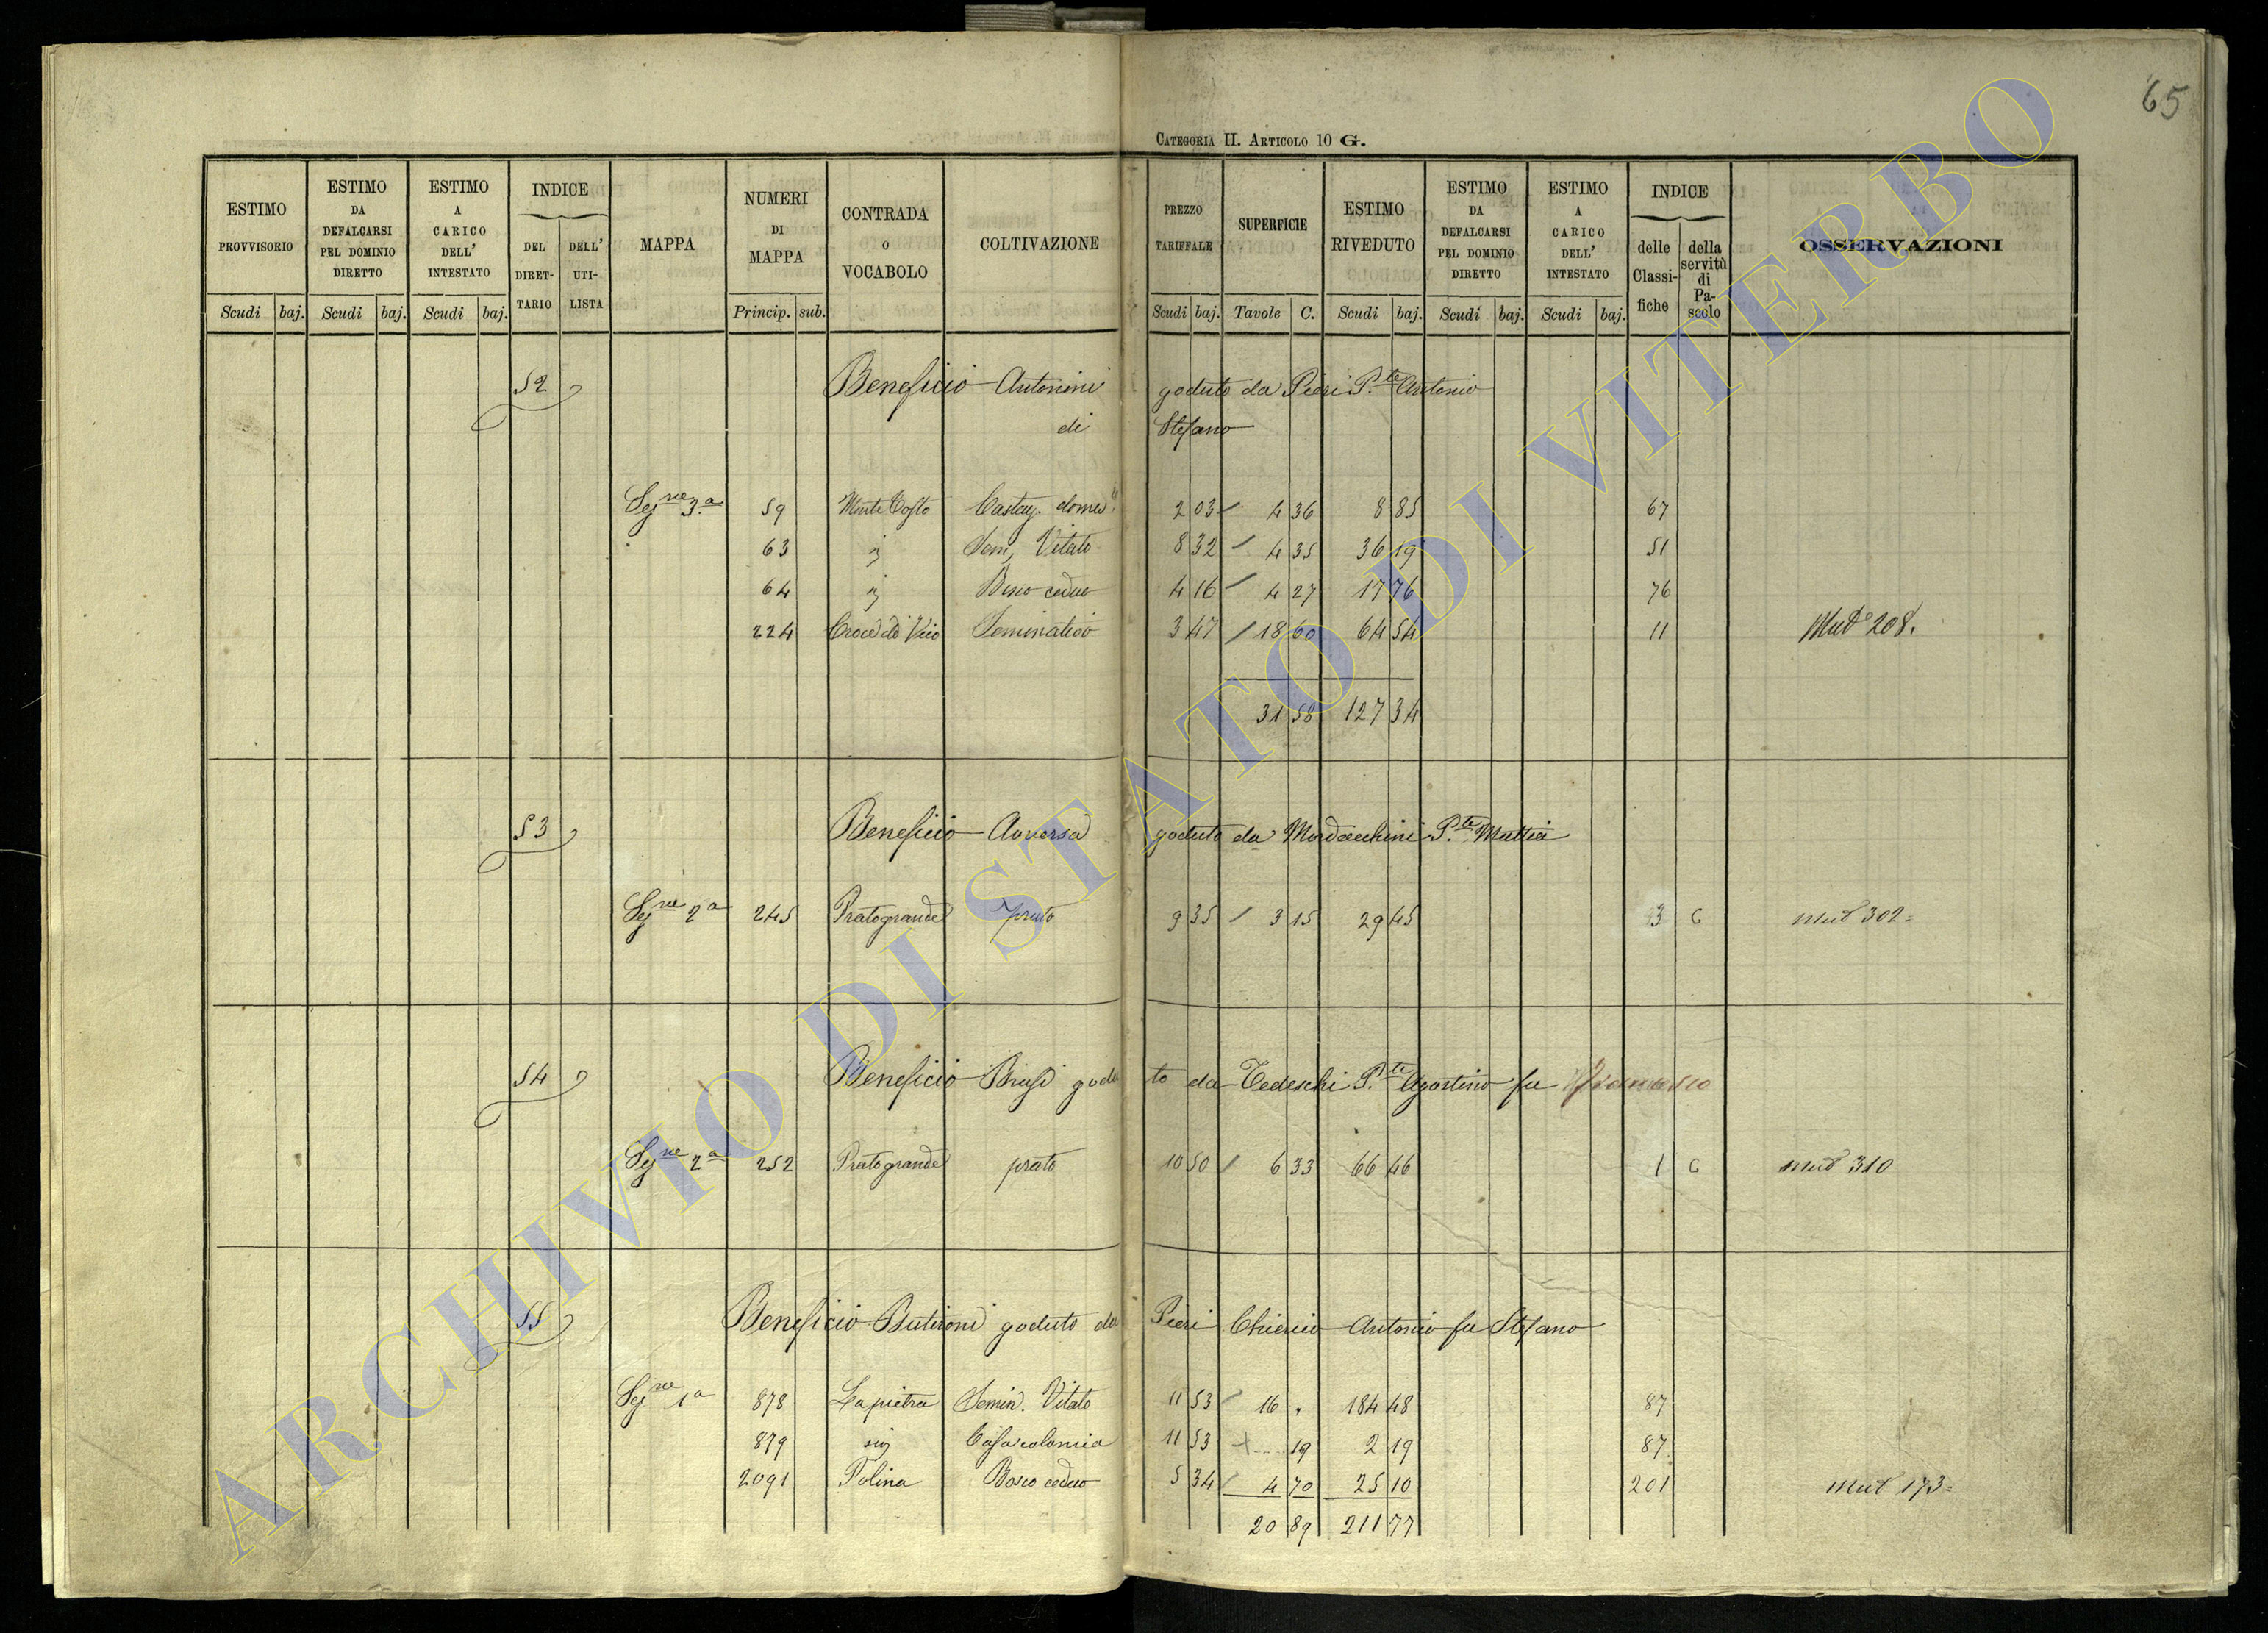 65
CATEGORIA II. ARTICOLO 10 G.
ESTIMO PROVVISORIO Scudi baj.
ESTIMO DA DEFALCARSI PEL DOMINIO DIRETTO Scudi baj.
ESTIMO A CARICO DELL' INTESTATO Scudi baj.
INDICE DEL DIRETTARIO DELL' UTILISTA
MAPPA
NUMERI DI MAPPA Princip. sub.
CONTRADA O VOCABOLO
COLTIVAZIONE
PREZZO TARIFFALE Scudi baj.
SUPERFICIE Tavole C.
ESTIMO RIVEDUTO Scudi baj.
ESTIMO DA DEFALCARSI PEL DOMINIO DIRETTO Scudi baj.
ESTIMO A CARICO DELL' INTESTATO Scudi baj.
INDICE delle Classifiche della servitù di Pascolo
OSSERVAZIONI
52 Beneficio Antonini goduto da Pieri P.te Antonio
di Stefano
Segne 3.a 59 Castag. domes 2 03 4 36 8 85 67
63 Sem, Vitato 8 32 4 35 36 19 51
64 Bosco ceduo 4 16 4 27 17 76 76
224 Seminativo 3 47 18 60 64 54 11 Mut 208.
31 58 127 34
53 Beneficio Aversa goduto da Mordacchini P.te Mattia
Segne 2a 245 Pratogrande prato 9 35 3 15 29 45 3 C Mut 302=
54 Beneficio goduto da Tedeschi P.te Agostino fu
Segne 2a 252 Pratogrande prato 10 50 6 33 66 46 1 C Mut 310
55 Beneficio Butironi goduto da Pieri Chierico Antonio fu Stefano
Segne 1a 878 La pietra Semin. Vitato 11 53 16 " 184 48 87
879 Casa colonica 11 53 19 2 19 87
2091 Polina Bosco ceduo 5 34 4 70 25 10 201 Mut 173=
20 89 211 77
ARCHIVIO DI STATO DI VITERBO